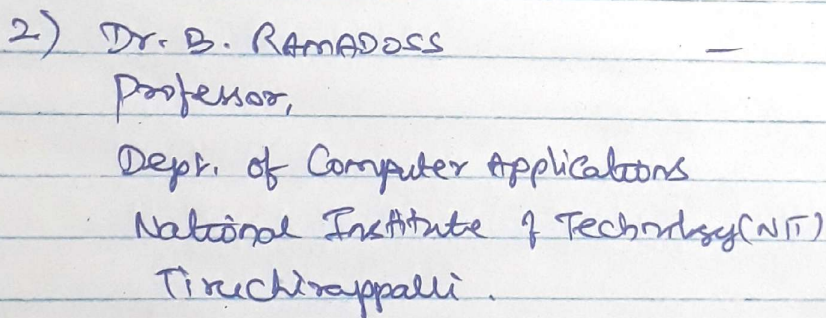 2) Dr. B. RAMADOSS –
Professor,
Dept. of Computer Applications
National Institute of Technology (NIT)
Tiruchirappalli.